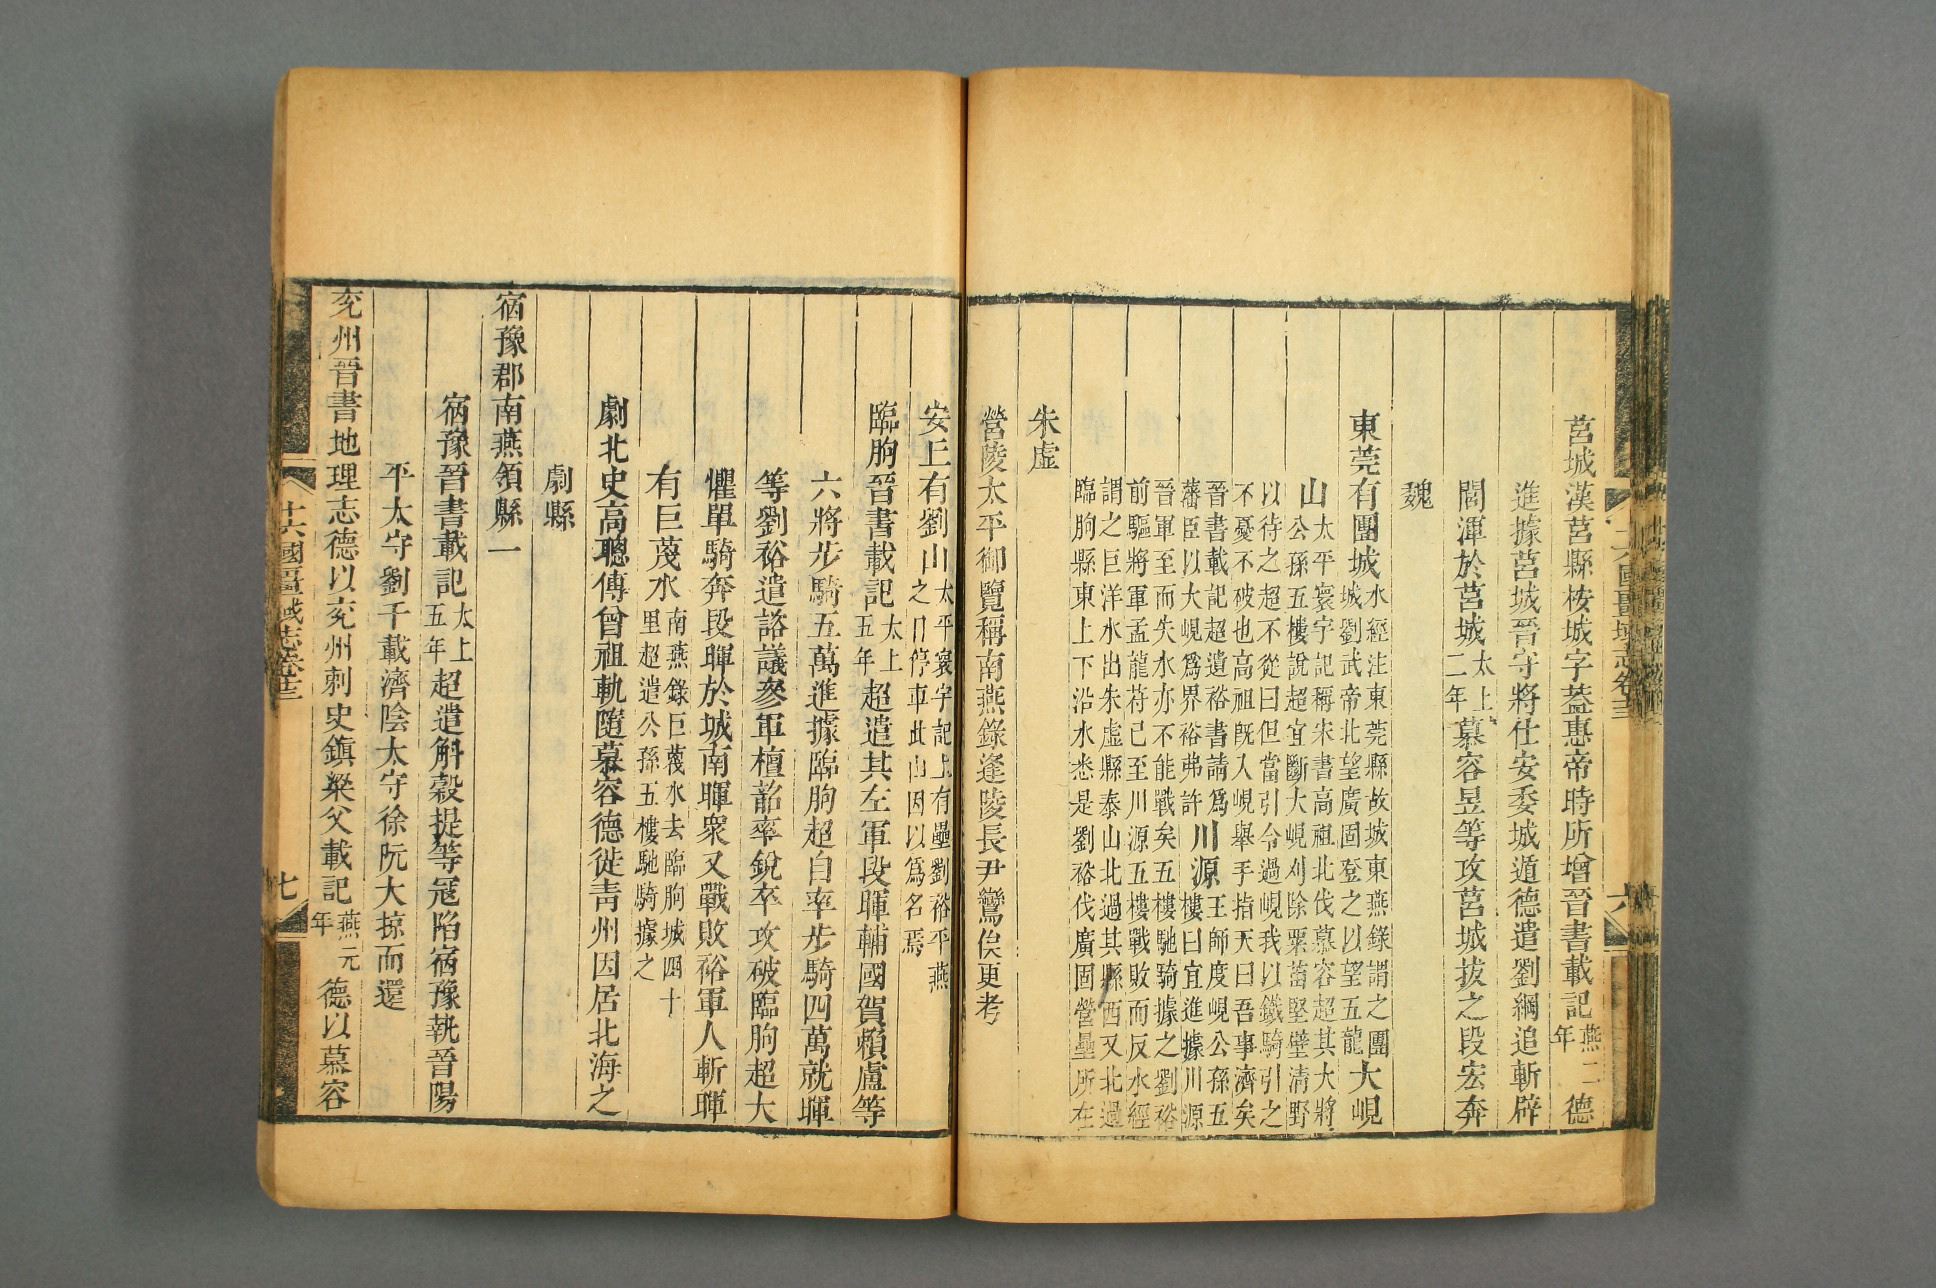 莒城漢莒縣桉城字葢惠帝時所增晉書載記燕二年德
進據莒城晉守將仕安委城遁德遣劉綱追斬辟
閭渾於莒城太上二年慕容昱等攻莒城拔之段宏奔
魏
東莞有團城水經注東莞縣故城東燕錄謂之團城劉武帝北望廣固登之以望五龍大峴
山太平寰宇記稱宋書高祖北伐慕容超其大將公孫五樓說超宜斷大峴刈除粟苗堅壁清野
以待之超不從曰但當引令過峴我以鐵騎引之不憂不破也高祖旣入峴舉手指天曰吾事濟矣
晉書載記超遺裕書請爲藩臣以大峴爲界裕弗許川源王師度峴公孫五樓曰宜進據川源
晉軍至而失水亦不能戰矣五樓馳騎據之劉裕前驅將軍孟龍符已至川源五樓戰敗而反水經
謂之巨洋水出朱虛縣泰山北過其縣西又北過臨朐縣東上下沿水悉是劉裕伐廣固營壘所在
朱虛
營陵太平御覽稱南燕錄逢陵長尹鸞俟更考
安丘有劉山太平寰宇記上有壘劉裕平燕之日停車此山因以爲名焉
臨朐晉書載記太上五年超遣其左軍段暉輔國賀賴盧等
六將步騎五萬進據臨朐超自率步騎四萬就暉
等劉裕遣諮議叅軍檀韶率銳卒攻破臨朐超大
懼單騎奔段暉於城南暉衆又戰敗裕軍人斬暉
有巨蔑水南燕錄巨蔑水去臨朐城四十里超遣公孫五樓馳騎據之
劇北史高聰傳曾祖軌隨慕容德徙青州因居北海之
劇縣
宿豫郡南燕領縣一
宿豫晉書載記太上五年超遣斛穀提等寇陷宿豫執晉陽
平太守劉千載濟陰太守徐阮大掠而還
兖州晉書地理志德以兖州刺史鎮梁父載記燕元年德以慕容
十六國疆域志卷十三
七